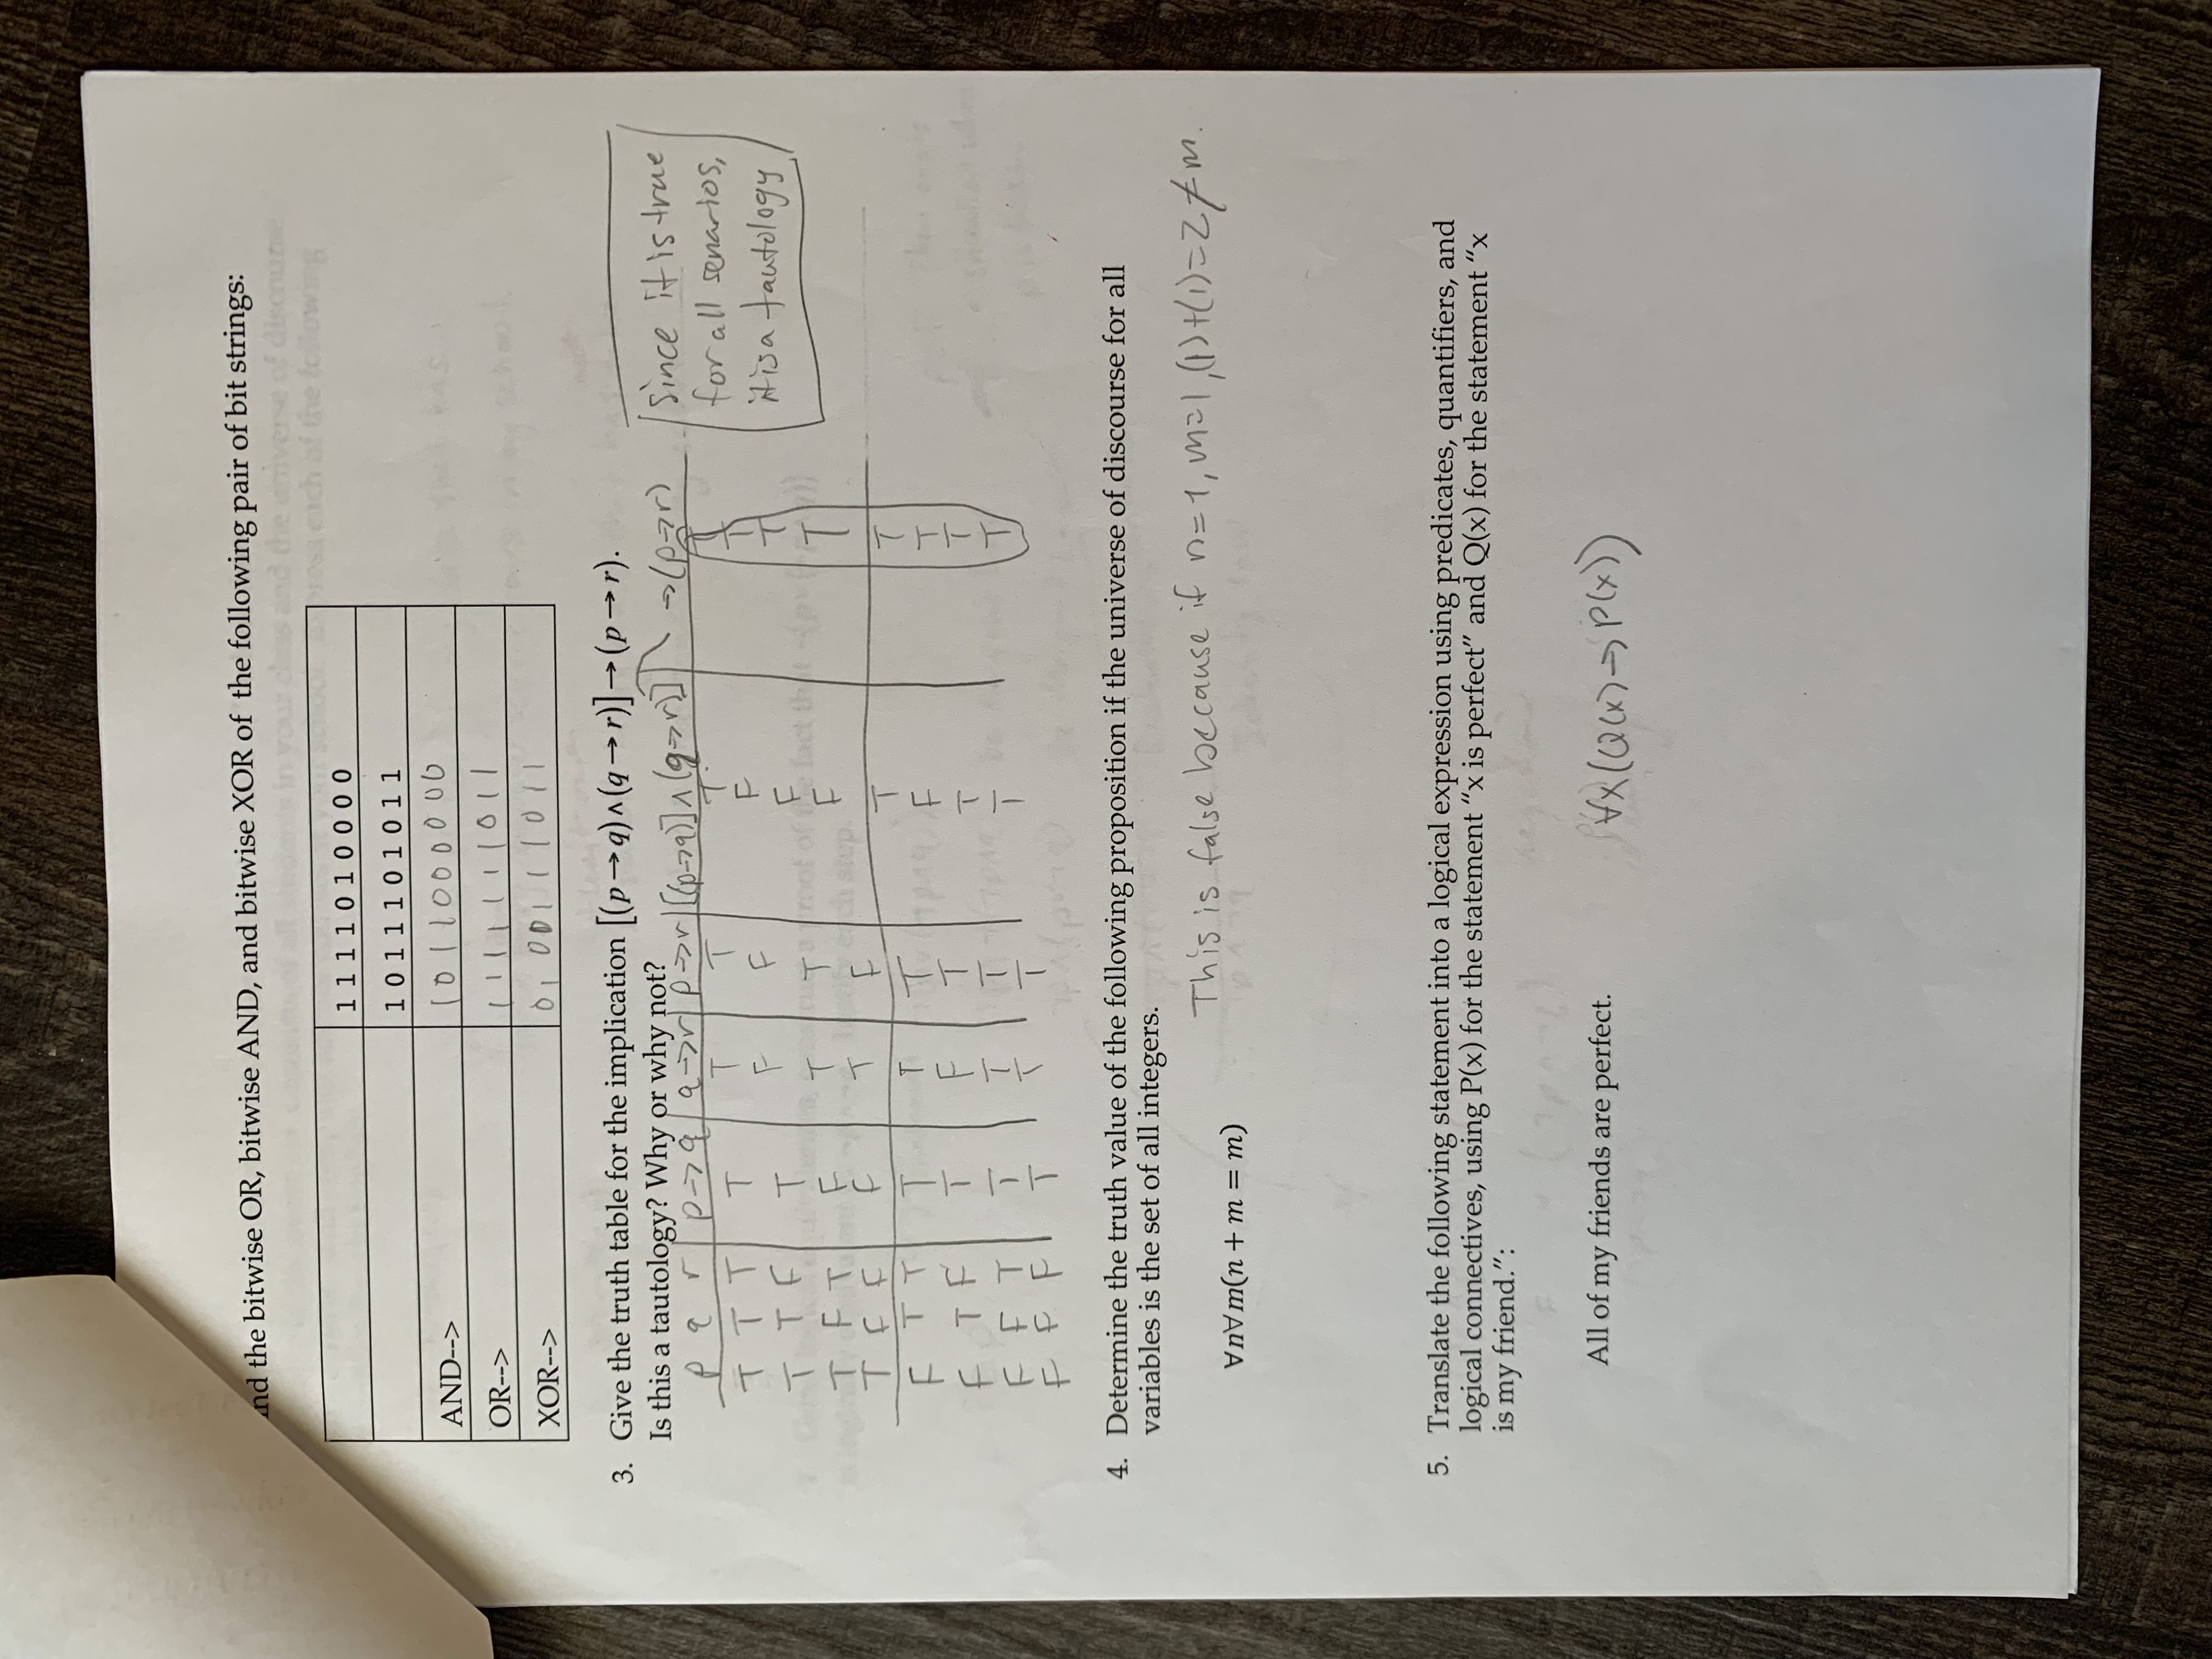 nd the bitwise OR, bitwise AND, and bitwise XOR of the following pair of bit strings:
1 1 1 1 0 1 0 0 0 0
1 0 1 1 1 0 1 0 1 1
AND--> 1 0 1 1 0 0 0 0 0 0
OR--> 1 1 1 1 1 1 1 0 1 1
XOR--> 0 1 0 0 1 1 1 0 1 1
3. Give the truth table for the implication [(p→q)∧(q→r)]→(p→r).
Is this a tautology? Why or why not?
p q r p→q q→r p→r [(p→q)]∧(q→r)] →(p→r)
T T T T T T T T
T T F T F F F T
T F T F T T F T
T F F F T F F T
F T T T T T T T
F T F T F T F T
F F T T T T T T
F F F T T T T T
Since it is true
for all senarios,
it is a tautology
4. Determine the truth value of the following proposition if the universe of discourse for all
variables is the set of all integers.
This is false because if n=1, m=1, (1)+(1)=2≠m.
∀n∀m(n + m = m)
5. Translate the following statement into a logical expression using predicates, quantifiers, and
logical connectives, using P(x) for the statement “x is perfect” and Q(x) for the statement “x
is my friend.”:
All of my friends are perfect. ∀x(Q(x)→P(x))